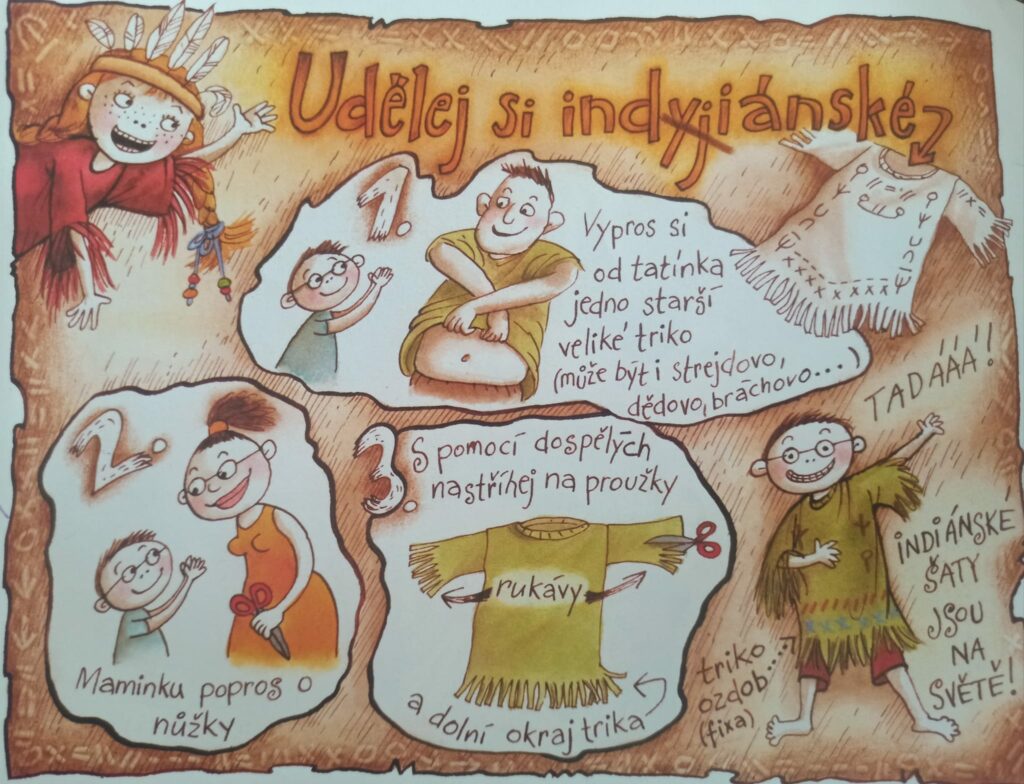 Udělej si indyjiánské
1.
Vypros si
od tatínka
jedno starší
veliké triko
(může být i strejdovo,
dědovo, bráchovo...)
2.
Maminku popros o
nůžky
3.
S pomocí dospělých
nastříhej na proužky
rukávy
a dolní okraj trika
triko
ozdob....
(fixa)
TADÁÁÁ!
iNDiÁNSKÉ
ŠATY
JSOU
NA
SVĚTĚ!